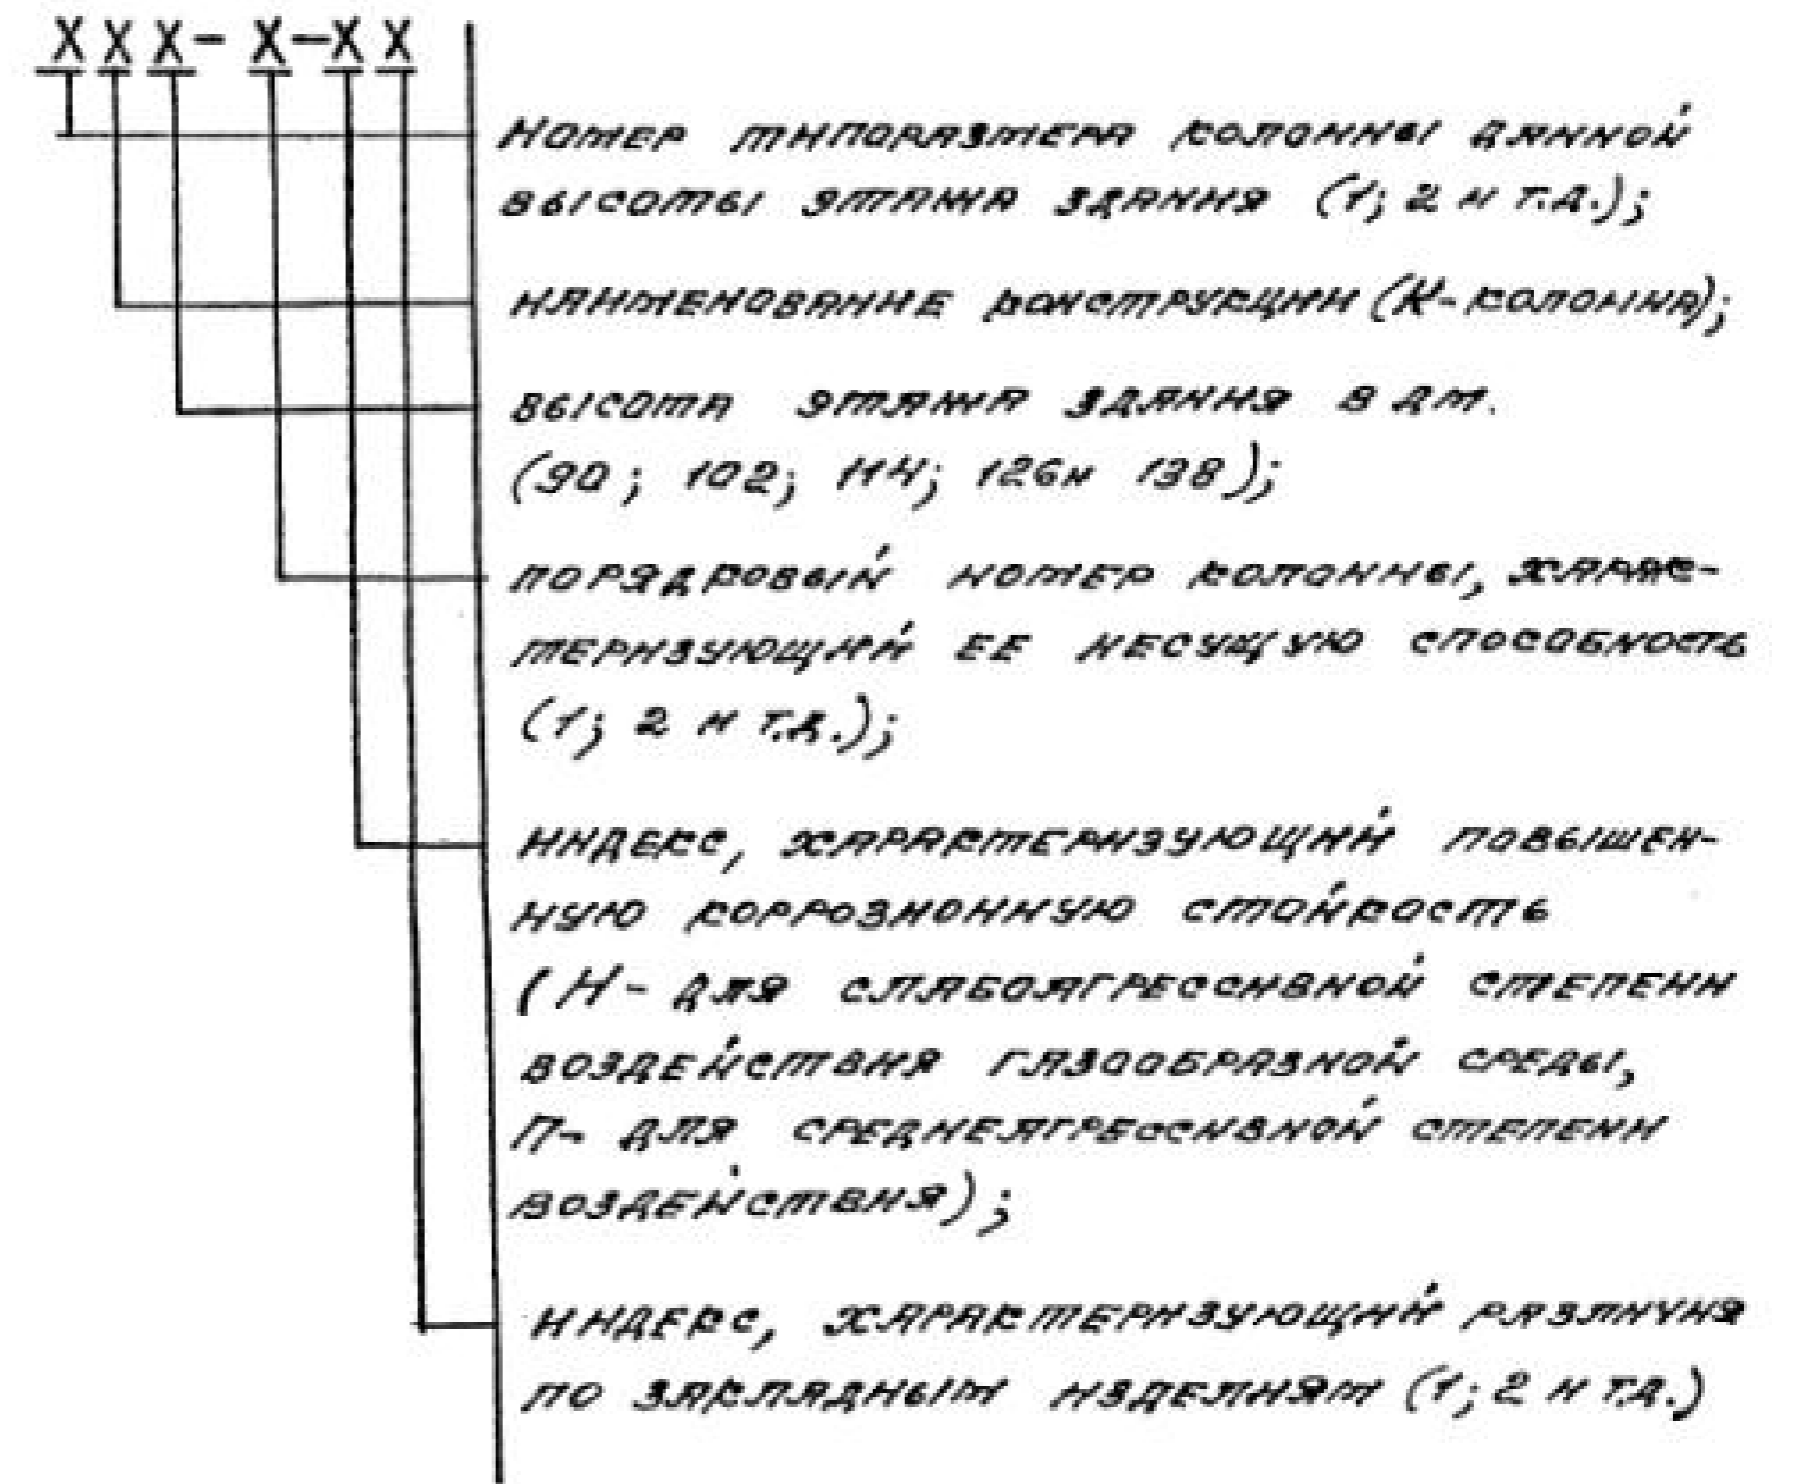 Х Х Х - Х - Х Х
Номер типоразмера колонны данной
высоты этажа здания (1; 2 и т.д.);
наименование конструкции (К-колонна);
высота этажа здания в дм.
(90; 102; 114; 126 и 138);
порядковый номер колонны, харак-
теризующий ее несущую способность
(1; 2 и т.д.);
индекс, характеризующий повышен-
ную коррозионную стойкость
(Н- для слабоагрессивной степени
воздействия газообразной среды,
П- для среднеагрессивной степени
воздействия);
индекс, характеризующий различия
по закладным изделиям (1; 2 и т.д.)